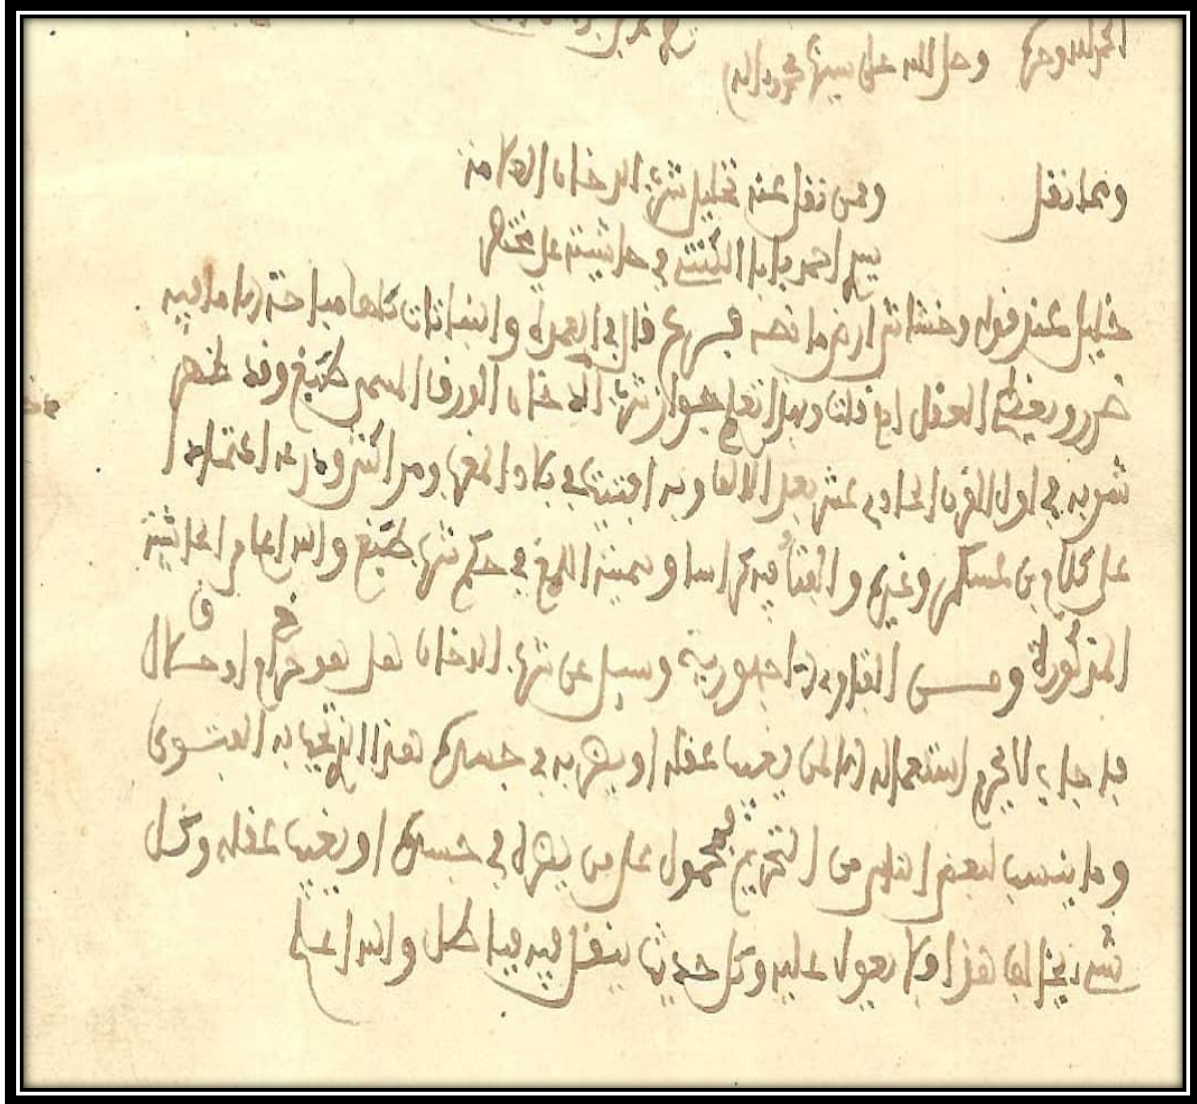 الحمد لله وحده وصلى الله على سيدنا محمد وآله
ومما نقل ومن نقل عنه تحليل شرب الدخان العلامة
سيدي احمد بابا التنبكتي في حاشيته على مختصر
خليل عند قوله وخشاش ارض ما نصه قال في العمدة والنباتات كلها مباحة الا ما فيه
ضرر ويغطي العقل اه قلت وبهذا تعلم جواز شرب الدخان الورق المسمى طبغ وقد ظهر
شربه في اول القرن الحادي عشر بعد الالف وبه افتيت في بلاد المغرب ومراكش ودرعة اعتمادا
على كلام بن عسكر وغيره والفنا فيه كراسا وسميته اللمغ في حكم شرب طبغ والله اعلم الحاشية
المذكورة ومن الفتاوي الاجهورية وسيل عن شرب الدخان هل هو حرام او حلال
فاجاب لا يحرم استعماله الا لمن يغيب عقله او يضر به في جسده هذا الذي تجب به الفتوى
وما ينسب لبعض الناس من التحريم فمحمول على من يضره في جسده او يغيب عقله وكل
شيء يخالف هذا لا يعول عليه وكل حديث ينقل فيه فباطل والله اعلم